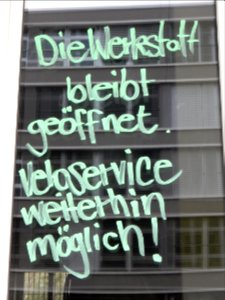 Die Werkstatt
bleibt
geöffnet.
Veloservice
weiterhin
möglich!